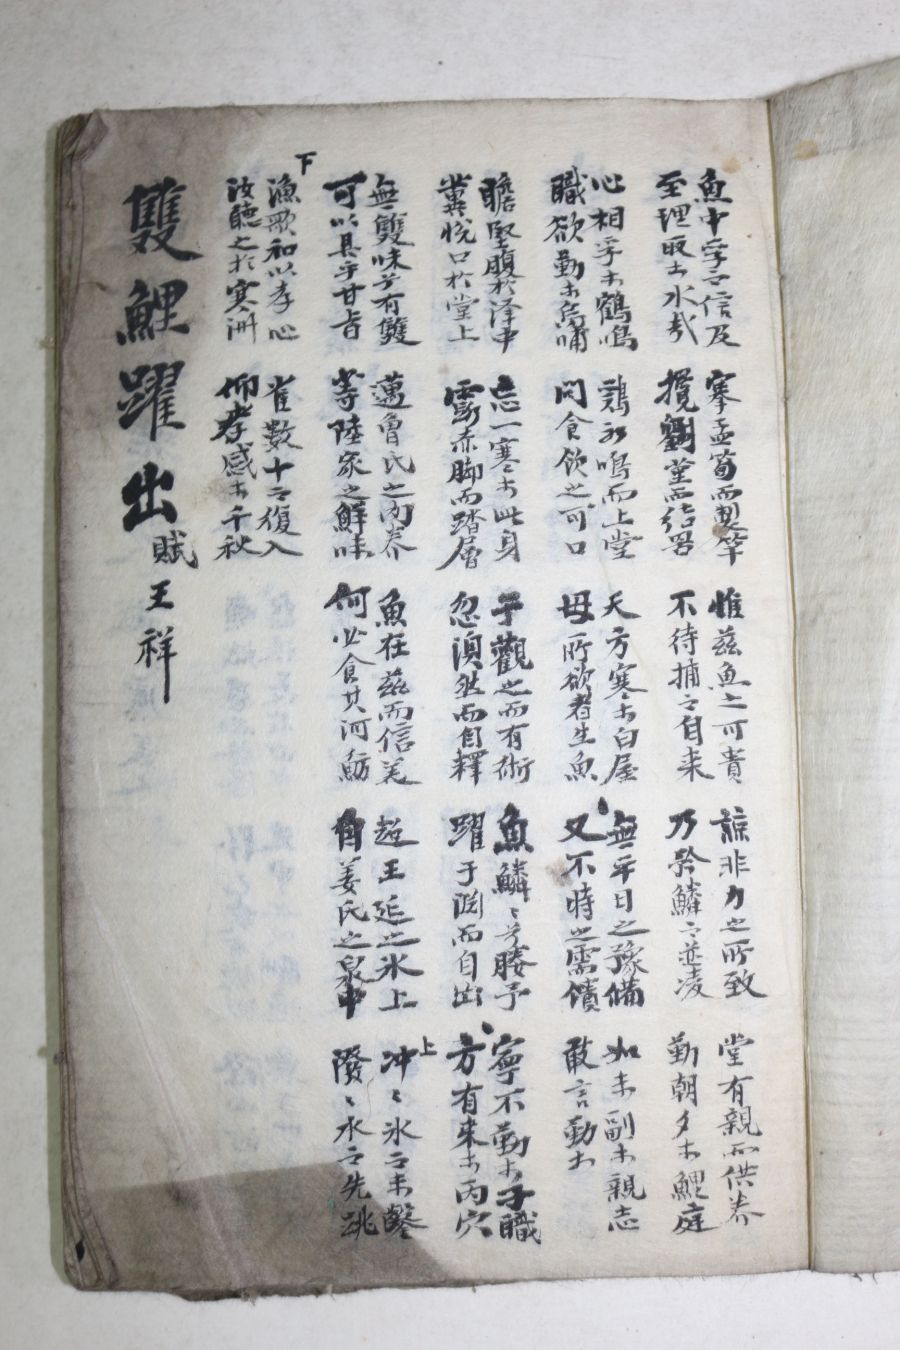 魚中孚而信及 搴孟筍而製竿 惟玆魚之可貴 諒非力之所致 堂有親而供養
至理取於水哉 攬劉堇而結罟 不待捕而自來 乃矜鱗而並凌 勤朝夕於鯉庭
心相孚於鶴鳴 鷄初鳴而上堂 天方寒於白屋 無平日之豫備 如未副於親志
職欲勤於烏哺 問食飮之可口 母所欲者生魚 又不時之需 敢言勤於
瞻堅腹於澤中 忘一寒於此身 子觀之而有術 魚鱗〻兮媵予 寧不勤於子職
冀悅口於堂上 露赤脚而踏層 忽渙然而自釋 躍于淵而自出 方有來於丙穴
無雙味兮有雙 邁曾氏之肉養 魚在玆而信美 超王延之氷上 上 冲〻氷而未鑿
可以具乎甘旨 等陸家之鮮味 何必食其河魴 自姜氏之泉中 潑〻水而先跳
下
漁歌和以孝心 雀數十而復入
汝聽之於寒洲 仰孝感於千秋
雙鯉躍出賦王祥